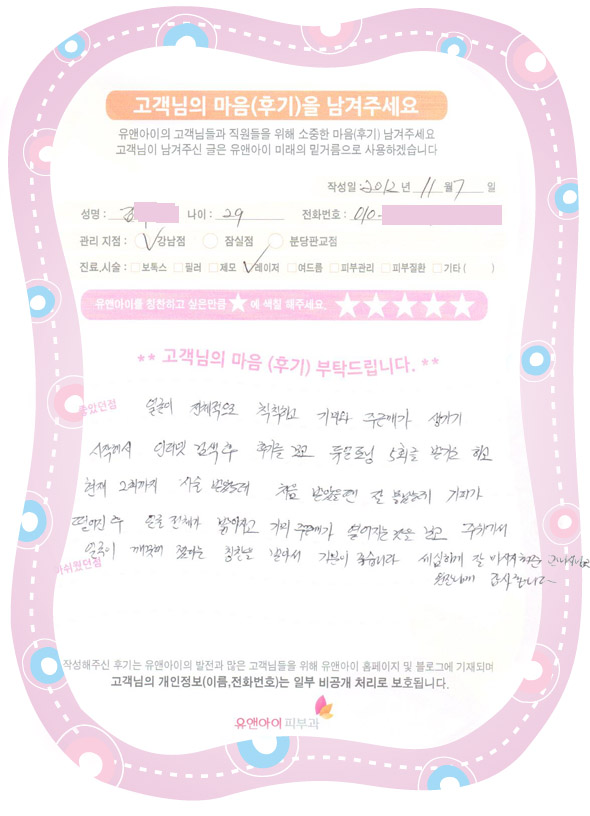 고객님의 마음(후기)을 남겨주세요
유앤아이의 고객님들과 직원들을 위해 소중한 마음(후기) 남겨주세요
고객님이 남겨주신 글은 유앤아이 미래의 밑거름으로 사용하겠습니다
작성일 : 2012 년 11 월 7 일
성명 : 김 나이 : 29 전화번호 : 010-
관리 지점 : 강남점 잠실점 분당판교점
진료,시술 : 보톡스 필러 제모 레이저 여드름 피부관리 피부질환 기타 ( )
유앤아이를 칭찬하고 싶은만큼 ★ 에 색칠 해주세요. ★★★★★
** 고객님의 마음 (후기) 부탁드립니다. **
좋았던점
얼굴이 전체적으로 칙칙하고 기미와 주근깨가 생기기
시작해서 인터넷 검색 후 후기를 보고 듀얼토닝 5회를 받기로 하고
현재 2회까지 시술 받았는데 처음 받았을땐 잘 몰랐는데 기미가
떨어진 후 얼굴 전체가 밝아지고 기미 주근깨가 옅어지는 것을 보고 주위에서
얼굴이 깨끗해 졌다는 칭찬을 받아서 기분이 좋습니다 세심하게 잘
아쉬웠던점
원장님께 감사합니다~
작성해주신 후기는 유앤아이의 발전과 많은 고객님들을 위해 유앤아이 홈페이지 및 블로그에 기재되며
고객님의 개인정보(이름,전화번호)는 일부 비공개 처리로 보호됩니다.
유앤아이 피부과